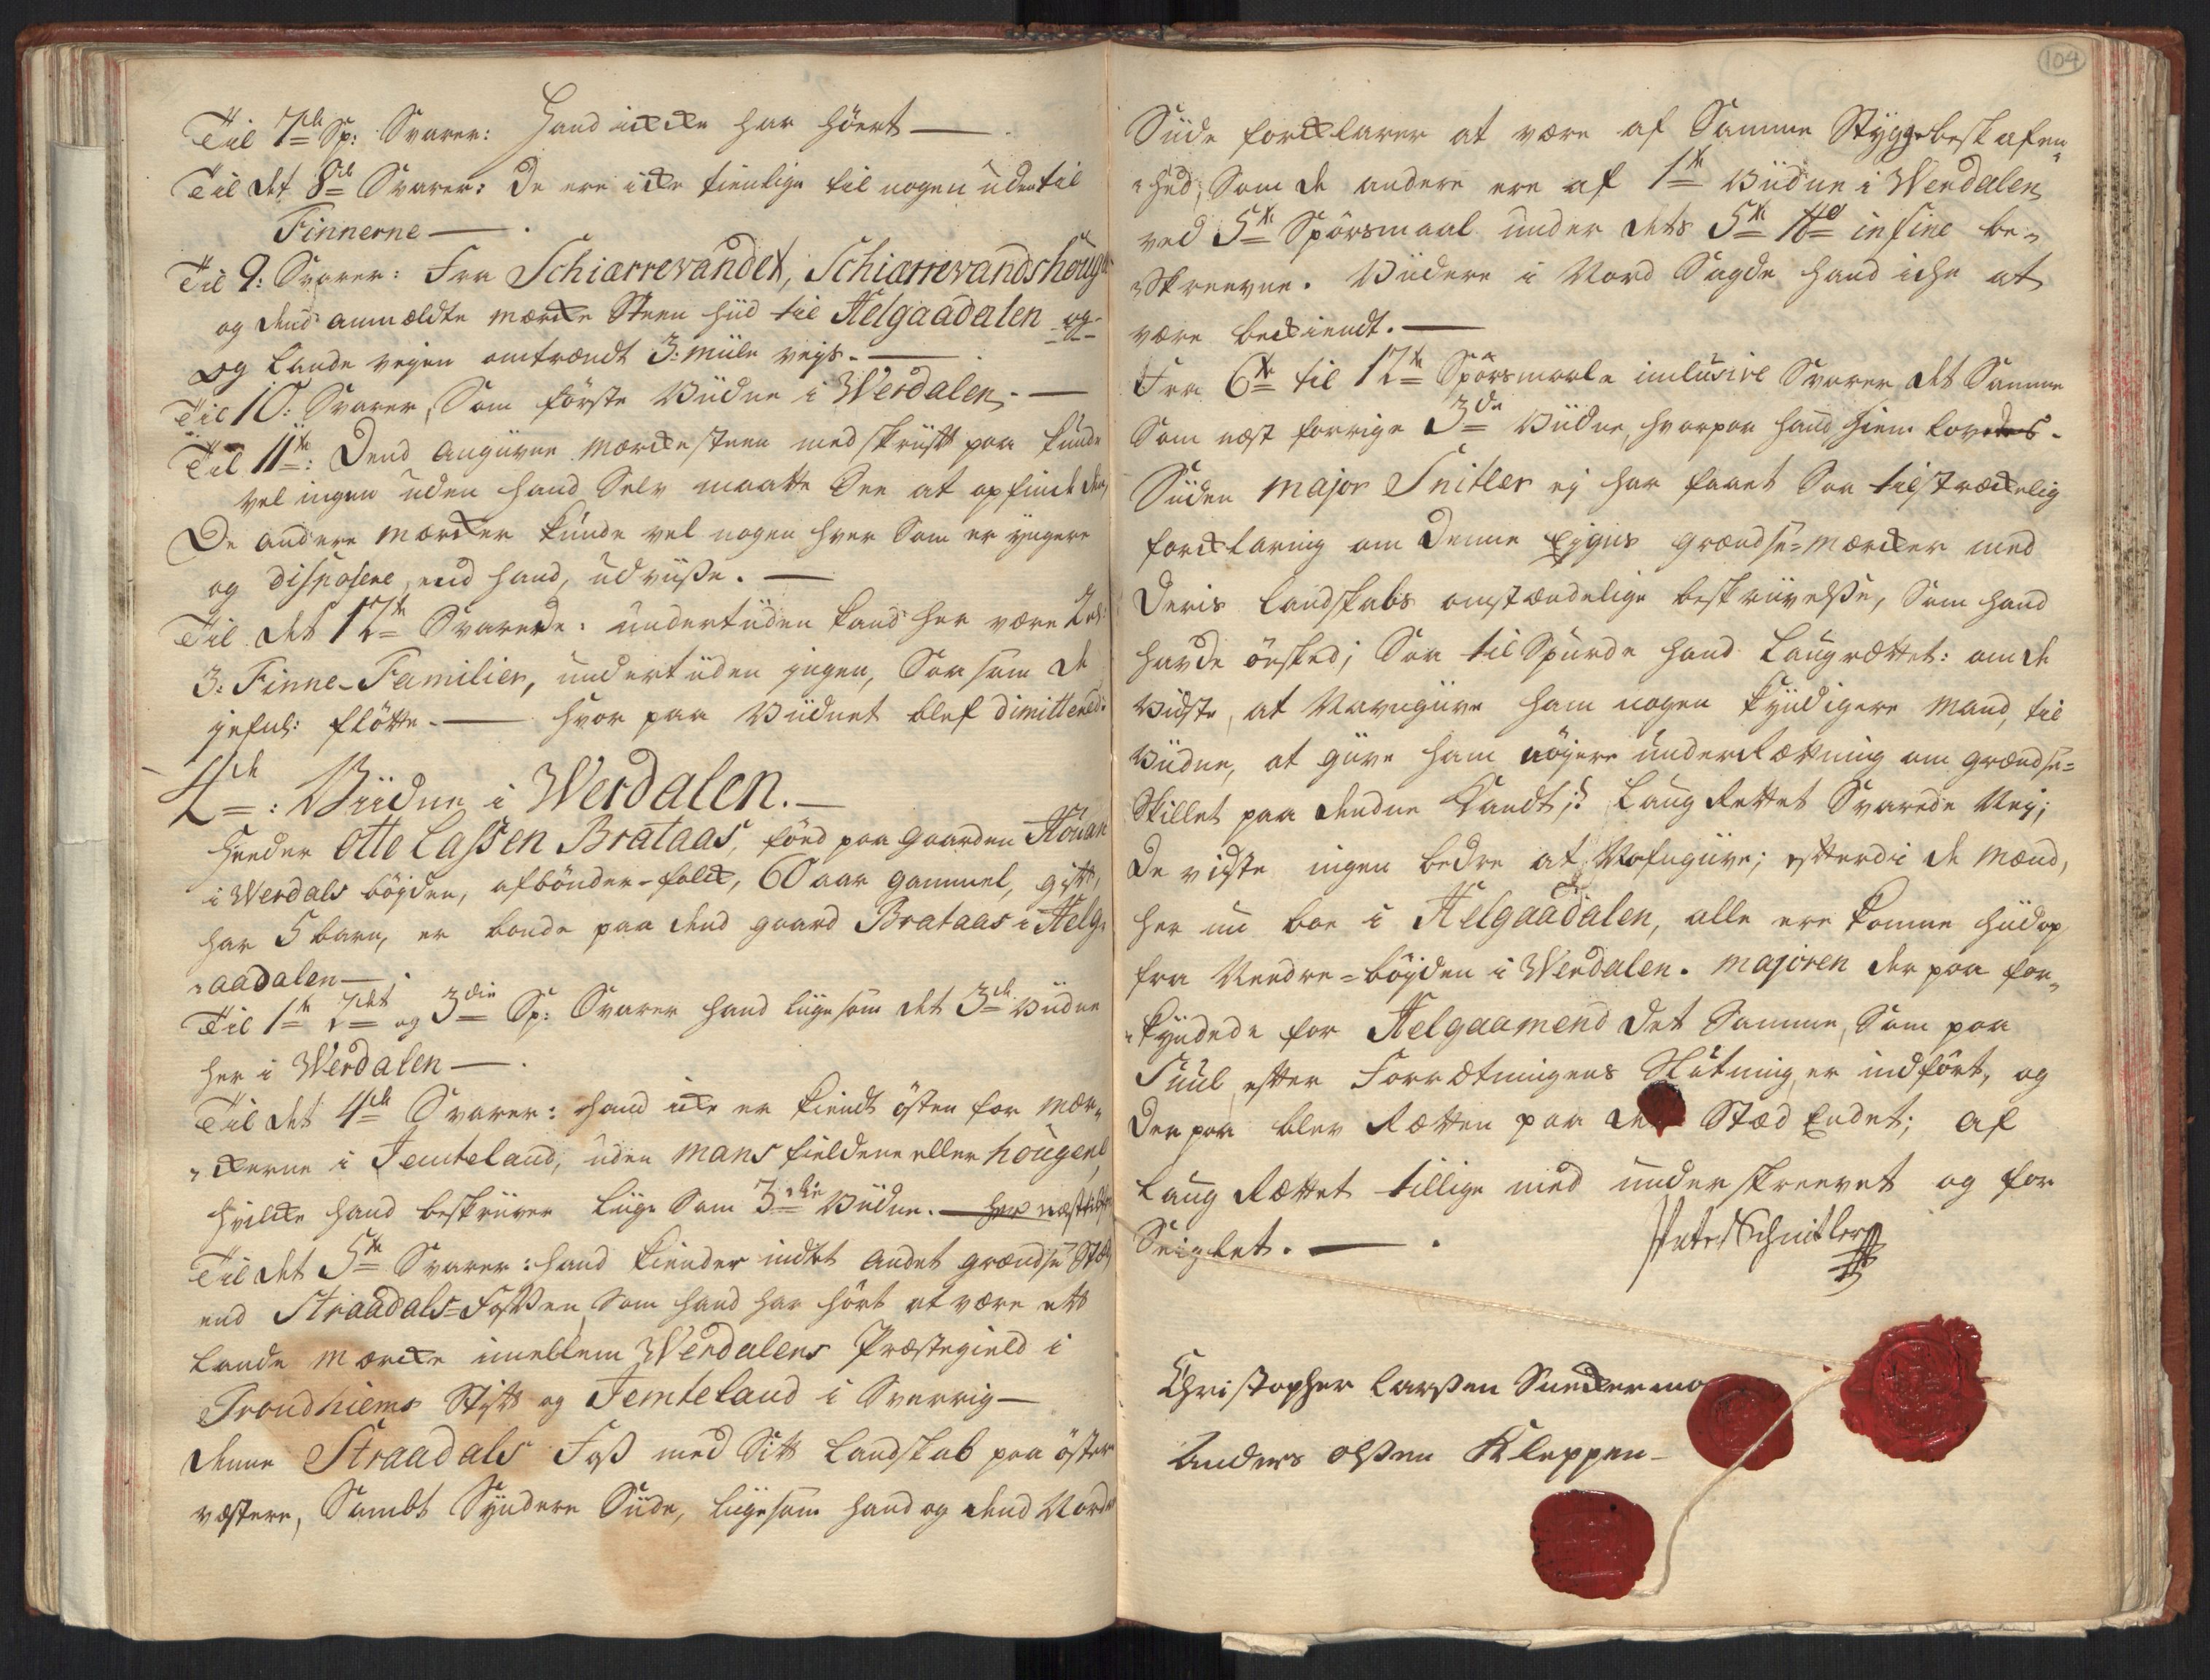 Til 7de Sp: Svarer: Hand icke har hört —
Til det 8de Svarer: De ere icke tienlige til nogen uden til
Finnerne —
Til 9: Svarer: Fra Schiærrevandet, Schiærrevandshoug
og dend anmældte mærcke Steen hiid til Helgaadalen
og Lande vejen omtrændt 3: miile vejs. —
Til 10: Svarer, Som förste Viidne i Werdalen. —
Til 11te: Dend angiivne mærckesteen med skriift paa kunde
vel ingen uden hand Selv maatte See at opfinde den,
De andere mærcker kunde vel nogen hver Som er yngere
og disposere, end hand, udviise. —
Til det 12te Svarede: undertiiden kand her være 2 a
3: Finne-Familier, undertiiden ingen, Saa som de
flötte. — hvor paa Viidnet blef dimittered.
4de: Viidne i Werdalen. —
Heeder Otte Lassen Brataas, föed paa Gaarden
i Werdals böjden, af bönder-folck, 60 aar gammel, gift,
har 5 barn, er bonde paa dend gaard Brataas i Helg-
aadalen —
Til 1te 2det og 3die Sp: Svarer hand liigesom det 3de Viidne
her i Werdalen —
Til det 4de Svarer: hand icke er kiendt östen for mær-
ckerne i Jemteland, uden mans fieldene eller hougene
hvilcke hand beskriiver liige Som 3die Viidne. —
Til det 5te Svarer: hand kiender indtet andet grændse
end Straadals-Fossen, Som hand har hört at være ett
Lande mærcke imellem Werdalens Præstegield i
Trondhiems Stift og Jemteland i Sverrig —
denne Straadals Foss med Sitt Landskab paa östere
vestere, Sambt Syndere Siide, liigesom hand og dend Nordre
104
Siide forcklarer at være af Samme Stygge beskafen-
hed, Som de andere ere af 1te Viidne i Werdalen
ved 5te Spörsmaal under dets 5te in fine be-
skreevne. Viidere i Nord Sagde hand icke at
være beckiendt. —
Fra 6te til 12te Spörsmaale inclusive Svarer det Samme
Som næst forrige 3de Viidne, hvorpaa hand hiem lovedes.
Siiden major Snitler ej har faaet Saa tilstræckelig
forcklaring om denne Egns grændse-mærcker med
deris Landskabs omstændelige beskriivelse, Som hand
havde önsked; Saa tilspurde hand Laugrættet: om de
vidste, at Navngiive ham nogen kyndigere mand, til
Viidne, at giive ham nöjere underRætning om grændse-
Skillet paa dendne Kandt;? Laug Rettet Svarede Nej;
De vidste ingen bedre at Nafngiive; efterdi de mænd,
her nu boe i Helgaadalen, alle ere komne hiidop
fra Needre-böjden i Werdalen. majoren der paa for-
kyndede for Helgaamend det Samme, Som paa
Suul efter Forrætningens Slutning, er indfört, og
Der paa blev Rætten paa Stæd Endet; af
Laug Rættet tillige med underskreevet og for
Seiglet. —
Peter Schnitler
Christopher Larsen Sneckermo
Anders Olsen Kleppen